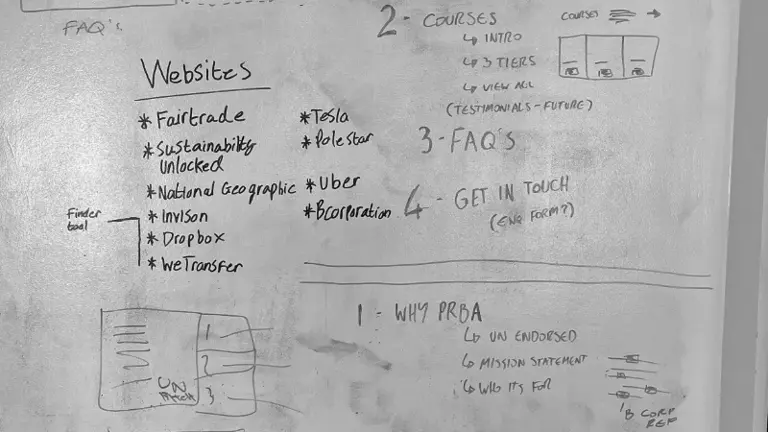 FAQ's
Websites
* Fairtrade
* Sustainability
Unlocked
* National Geographic
* Invison
* Dropbox
* WeTransfer
Finder
tool
* Tesla
* Polestar
* Uber
* BCorporation
2 - COURSES
↳ INTRO
↳ 3 TIERS
↳ VIEW ALL
(TESTIMONIALS - FUTURE)
COURSES →
3 - FAQ'S
4 - GET IN TOUCH
(ENQ FORM?)
1 - WHY PRBA
↳ UN ENDORSED
↳ MISSION STATEMENT
↳ WHO ITS FOR
B CORP
REF
1
2
3
UN